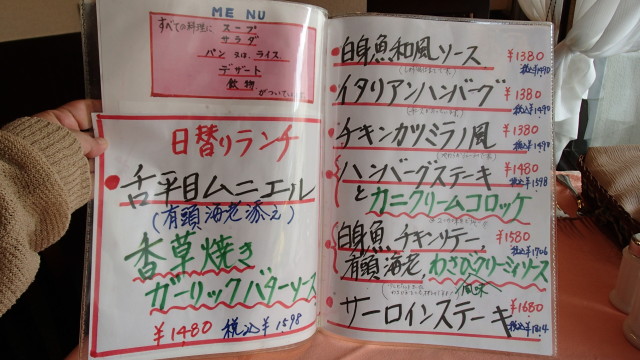 MENU
すべての料理に
スープ
サラダ
パン又はライス
デザート
飲物
がついています
日替りランチ
舌平目ムニエル
(有頭海老添え)
香草焼き
ガーリックバターソース
¥1480 税込¥1598
白身魚和風ソース ¥1380
税込¥1490
イタリアンハンバーグ ¥1380
税込¥1490
チキンカツミラノ風 ¥1380
税込¥1490
ハンバーグステーキ ¥1480
税込¥1598
と カニクリームコロッケ
白身魚、チキンソテー、 ¥1580
税込¥1706
有頭海老、わさびクリーミィソース
風味
サーロインステーキ ¥1680
税込¥1814